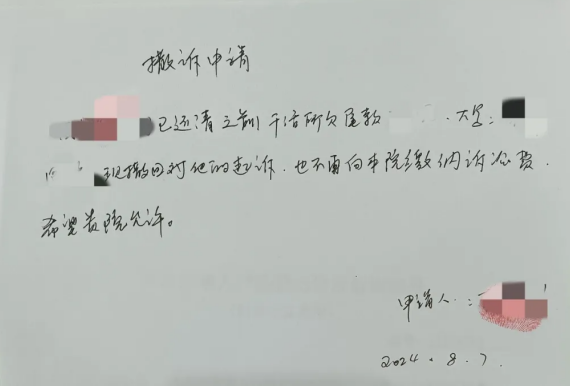 撤诉申请
已还清之前干活所欠尾款 大写:
现撤回对他的起诉,也不再向本院缴纳诉讼费,
希望贵院允许。
申请人:
2024.8.7.